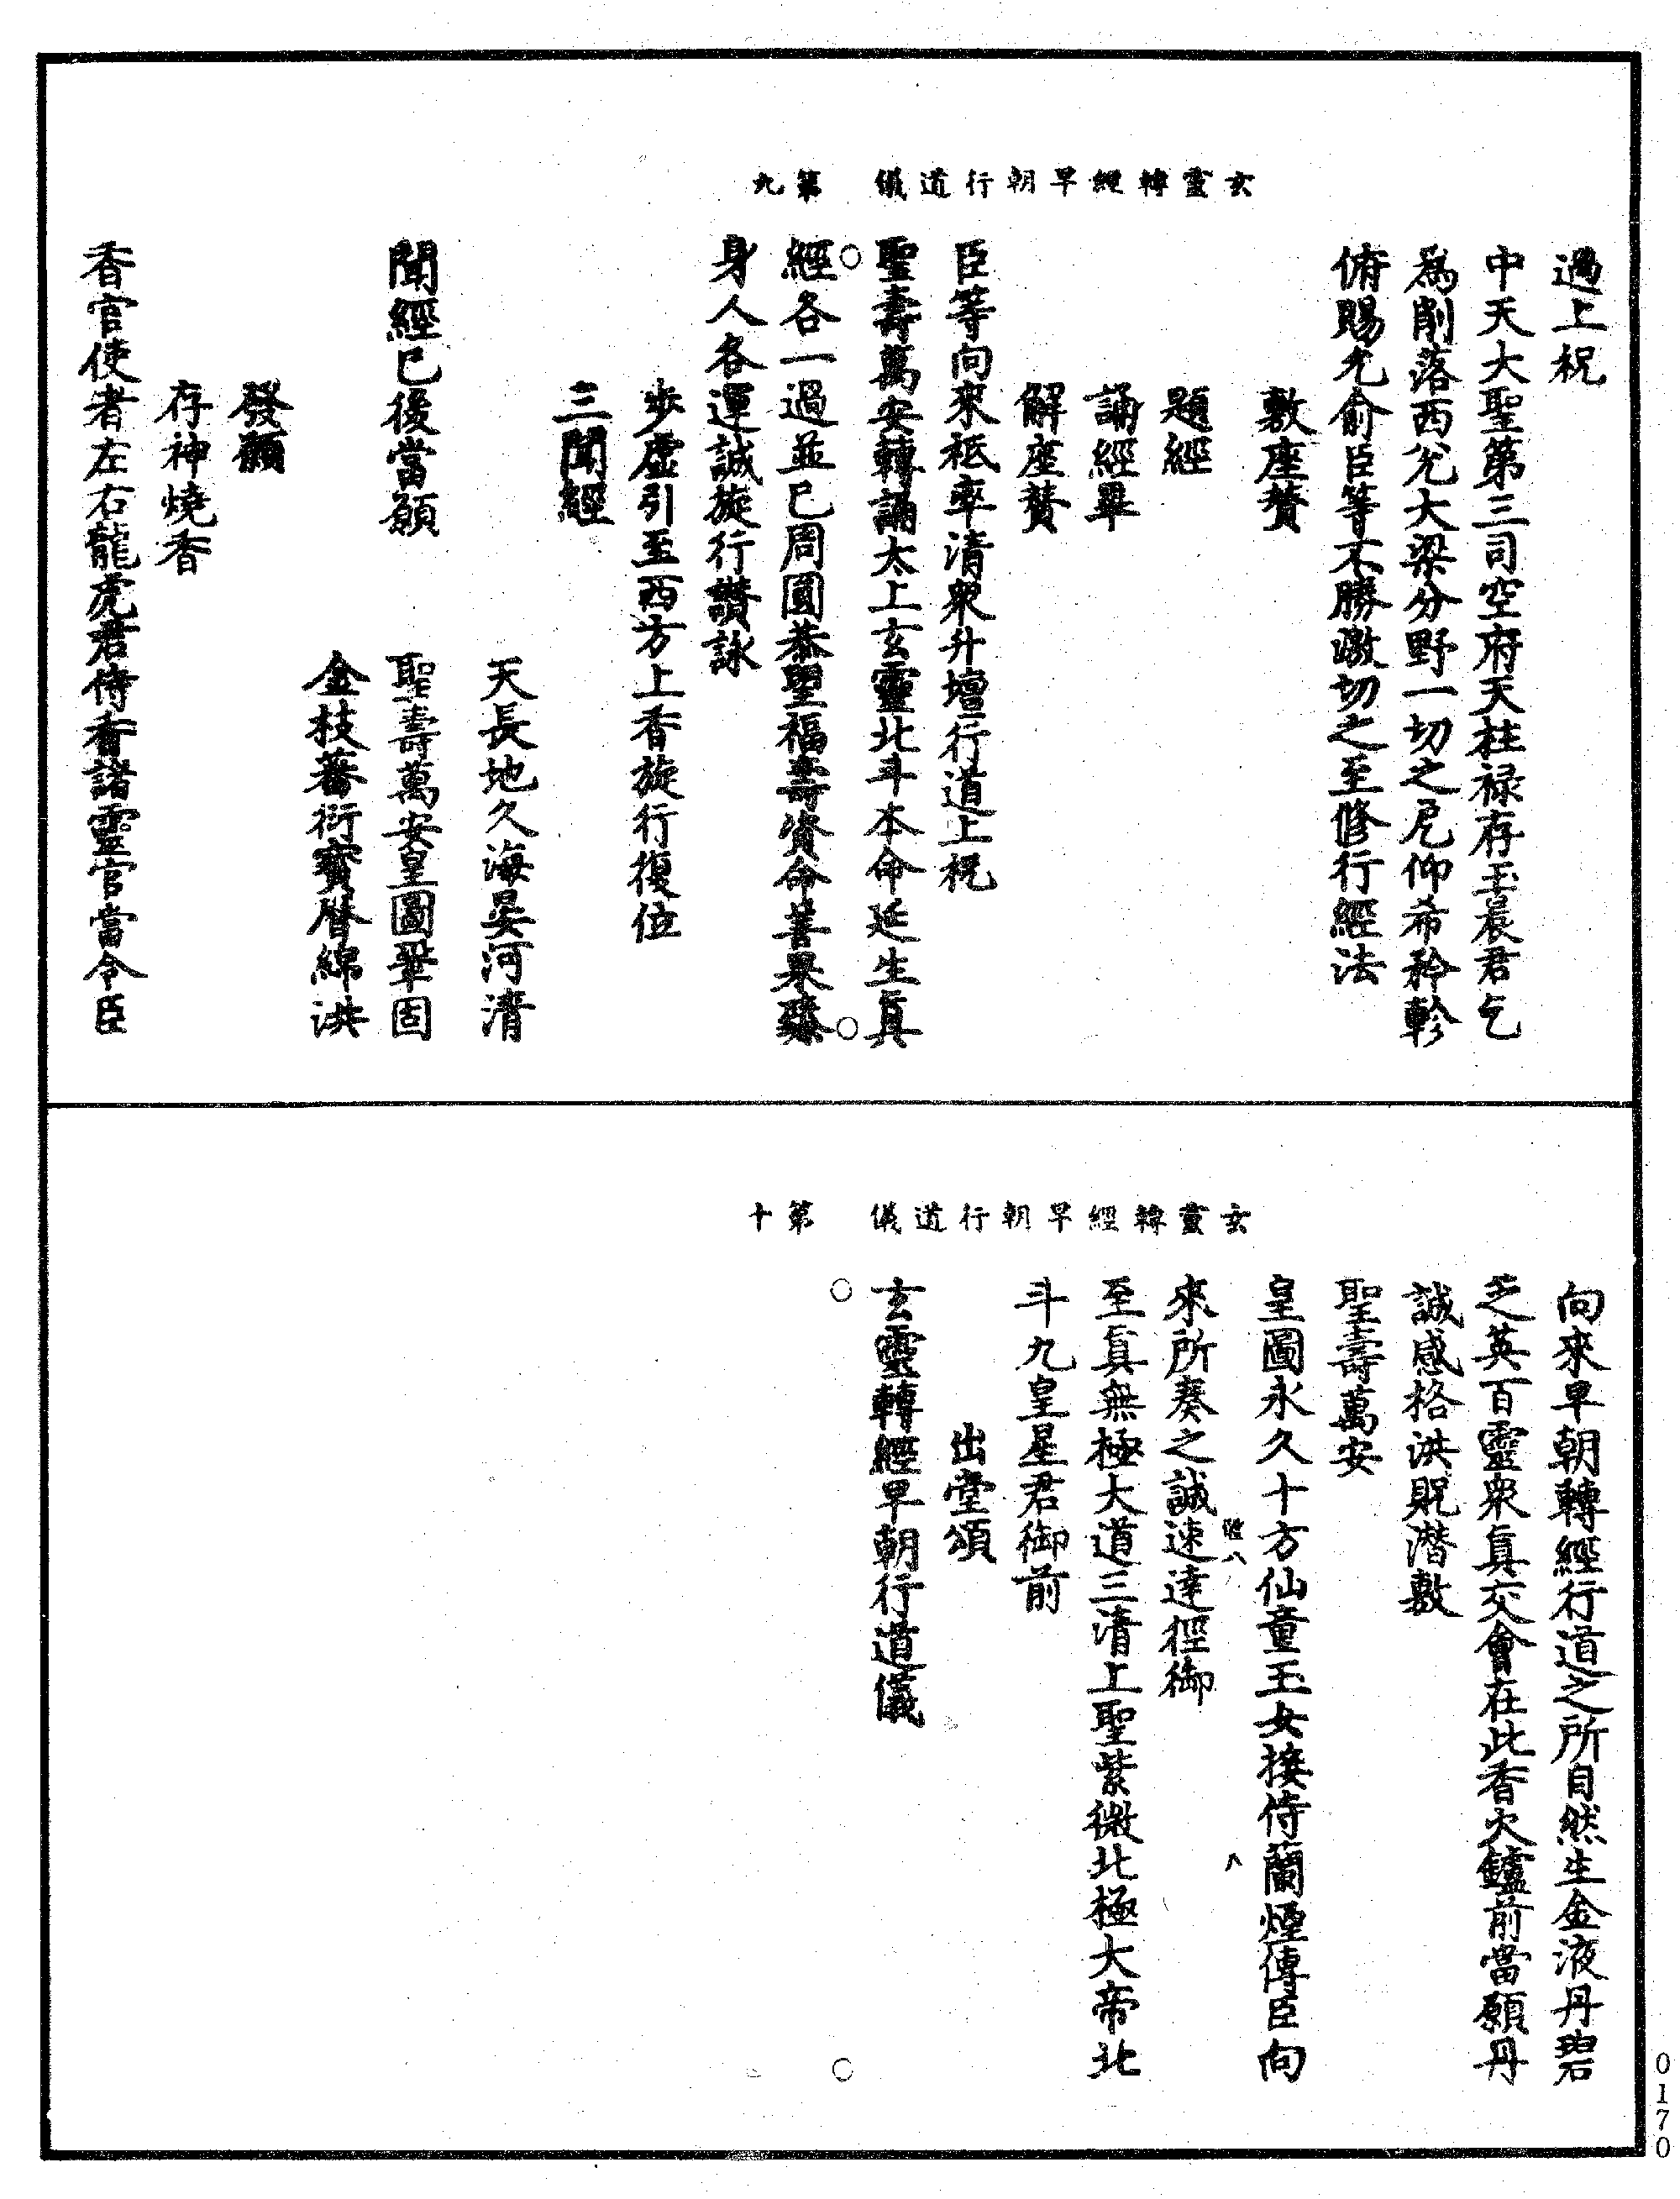 玄靈轉經早朝行道儀　第九
過上祝
中天大聖第三司空府天柱禄存玉晨君乞
爲削落西兊大梁分野一切之戹仰希矜軫
俯賜允俞臣等不勝激切之至修行經法
敷座贊
題經
誦經畢
解座贊
臣等向來祗率清衆升壇行道上祝
聖壽萬安轉誦太上玄靈北斗本命延生眞
經各一過並已周圓恭聖福壽資命善果臻
身人各運誠旋行讚詠
步虛引至西方上香旋行復位
三聞經
天長地久海晏河清
聞經已後當願　聖壽萬安皇圖鞏固
金枝蕃衍寳曆綿洪
發願
存神燒香
香官使者左右龍虎君侍香諸靈官當令臣
玄靈轉經早朝行道儀　第十
向來早朝轉經行道之所自然生金液丹碧
芝英百靈衆眞交會在此香火鑪前當願丹
誠感格洪貺潛敷
聖壽萬安
皇圖永久十方仙童玉女接侍蘭煙傳臣向
來所奏之誠速達徑御
至眞無極大道三清上聖紫微北極大帝北
斗九皇星君御前
出堂頌
玄靈轉經早朝行道儀
0170